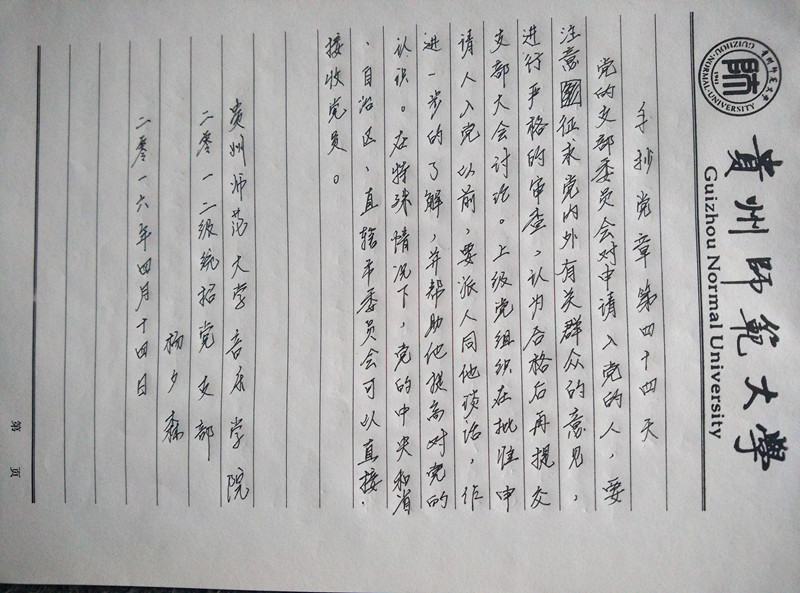 貴州師範大學
Guizhou Normal University
貴州師範大學
GUIZHOU NORMAL UNIVERSITY
師
1941
手抄党章第四十四天
党的支部委员会对申请入党的人，要
注意征求党内外有关群众的意见，
进行严格的审查，认为合格后再提交
支部大会讨论。上级党组织在批准申
请人入党以前，要派人同他谈话，作
进一步的了解，并帮助他提高对党的
认识。在特殊情况下，党的中央和省
、自治区、直辖市委员会可以直接
接收党员。
贵州师范大学音乐学院
二零一二级统招党支部
杨夕
二零一六年四月十四日
第 页